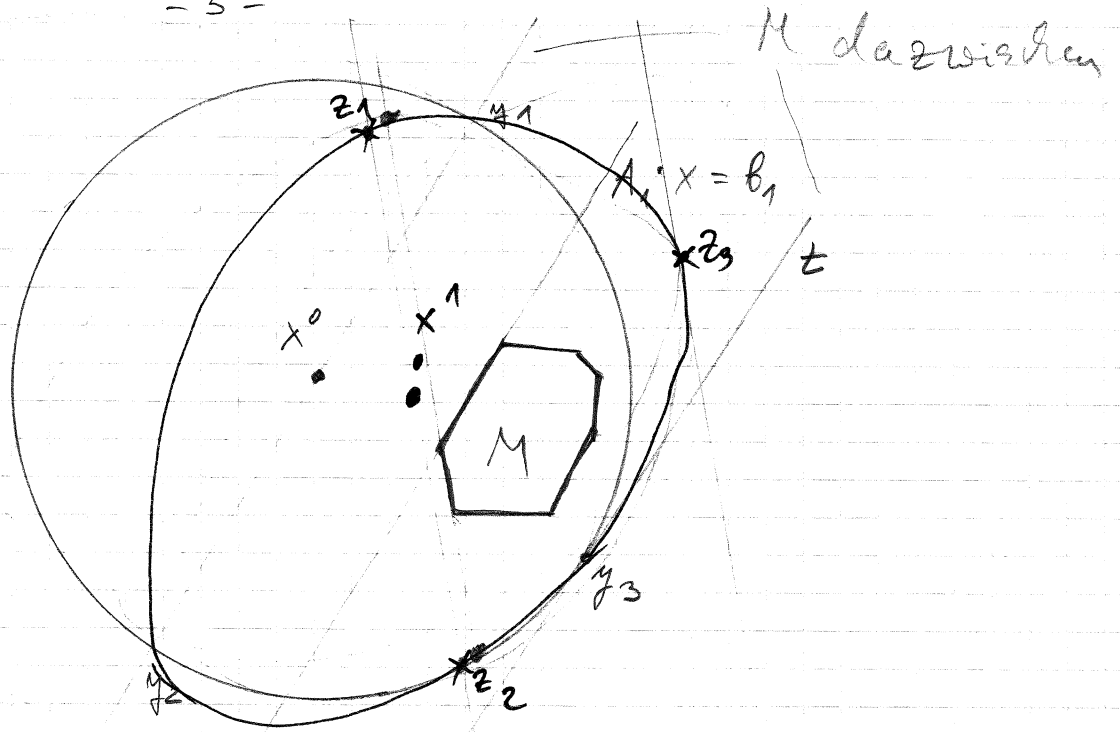 - 5 -
M dazwischen
z1
y1
A1 · x = b1
z3
t
x^1
x^0
M
y3
z2
y2